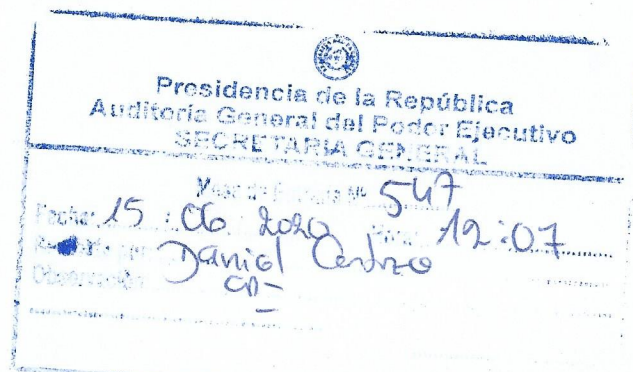 Presidencia de la República
Auditoría General del Poder Ejecutivo
SECRETARIA GENERAL
Mesa de Entrada Nº 547
Fecha: 15 . 06 2020 Hora: 12:07
Daniel
Observación: